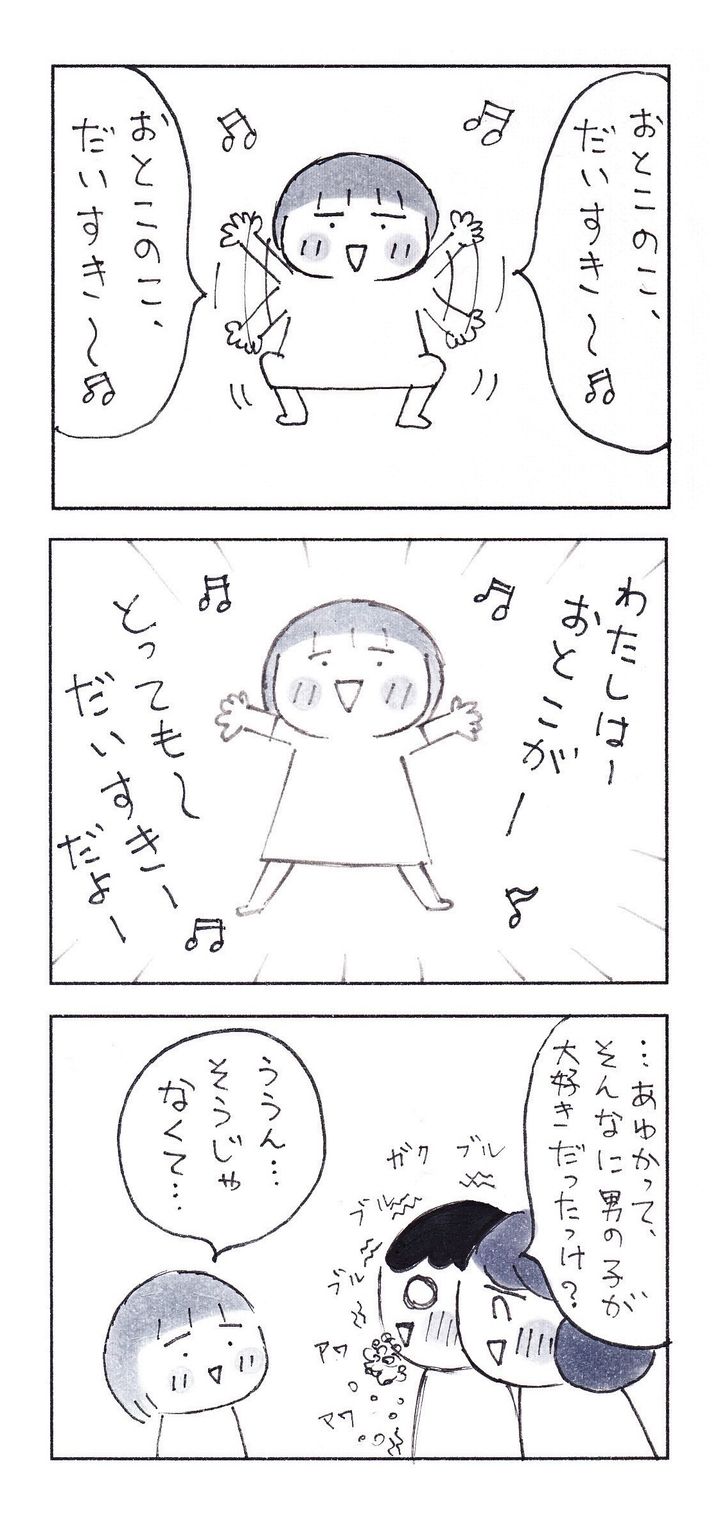 おとこのこ、
だいすき〜♫
おとこのこ、
だいすき〜♫
わたしはー
おとこがー
とっても〜
だいすきー
だよー
…あゆかって、
そんなに男の子が
大好きだったっけ?
ブル
ガク
ブル
ブル
アワ
アワ
ううん…
そうじゃ
なくて…